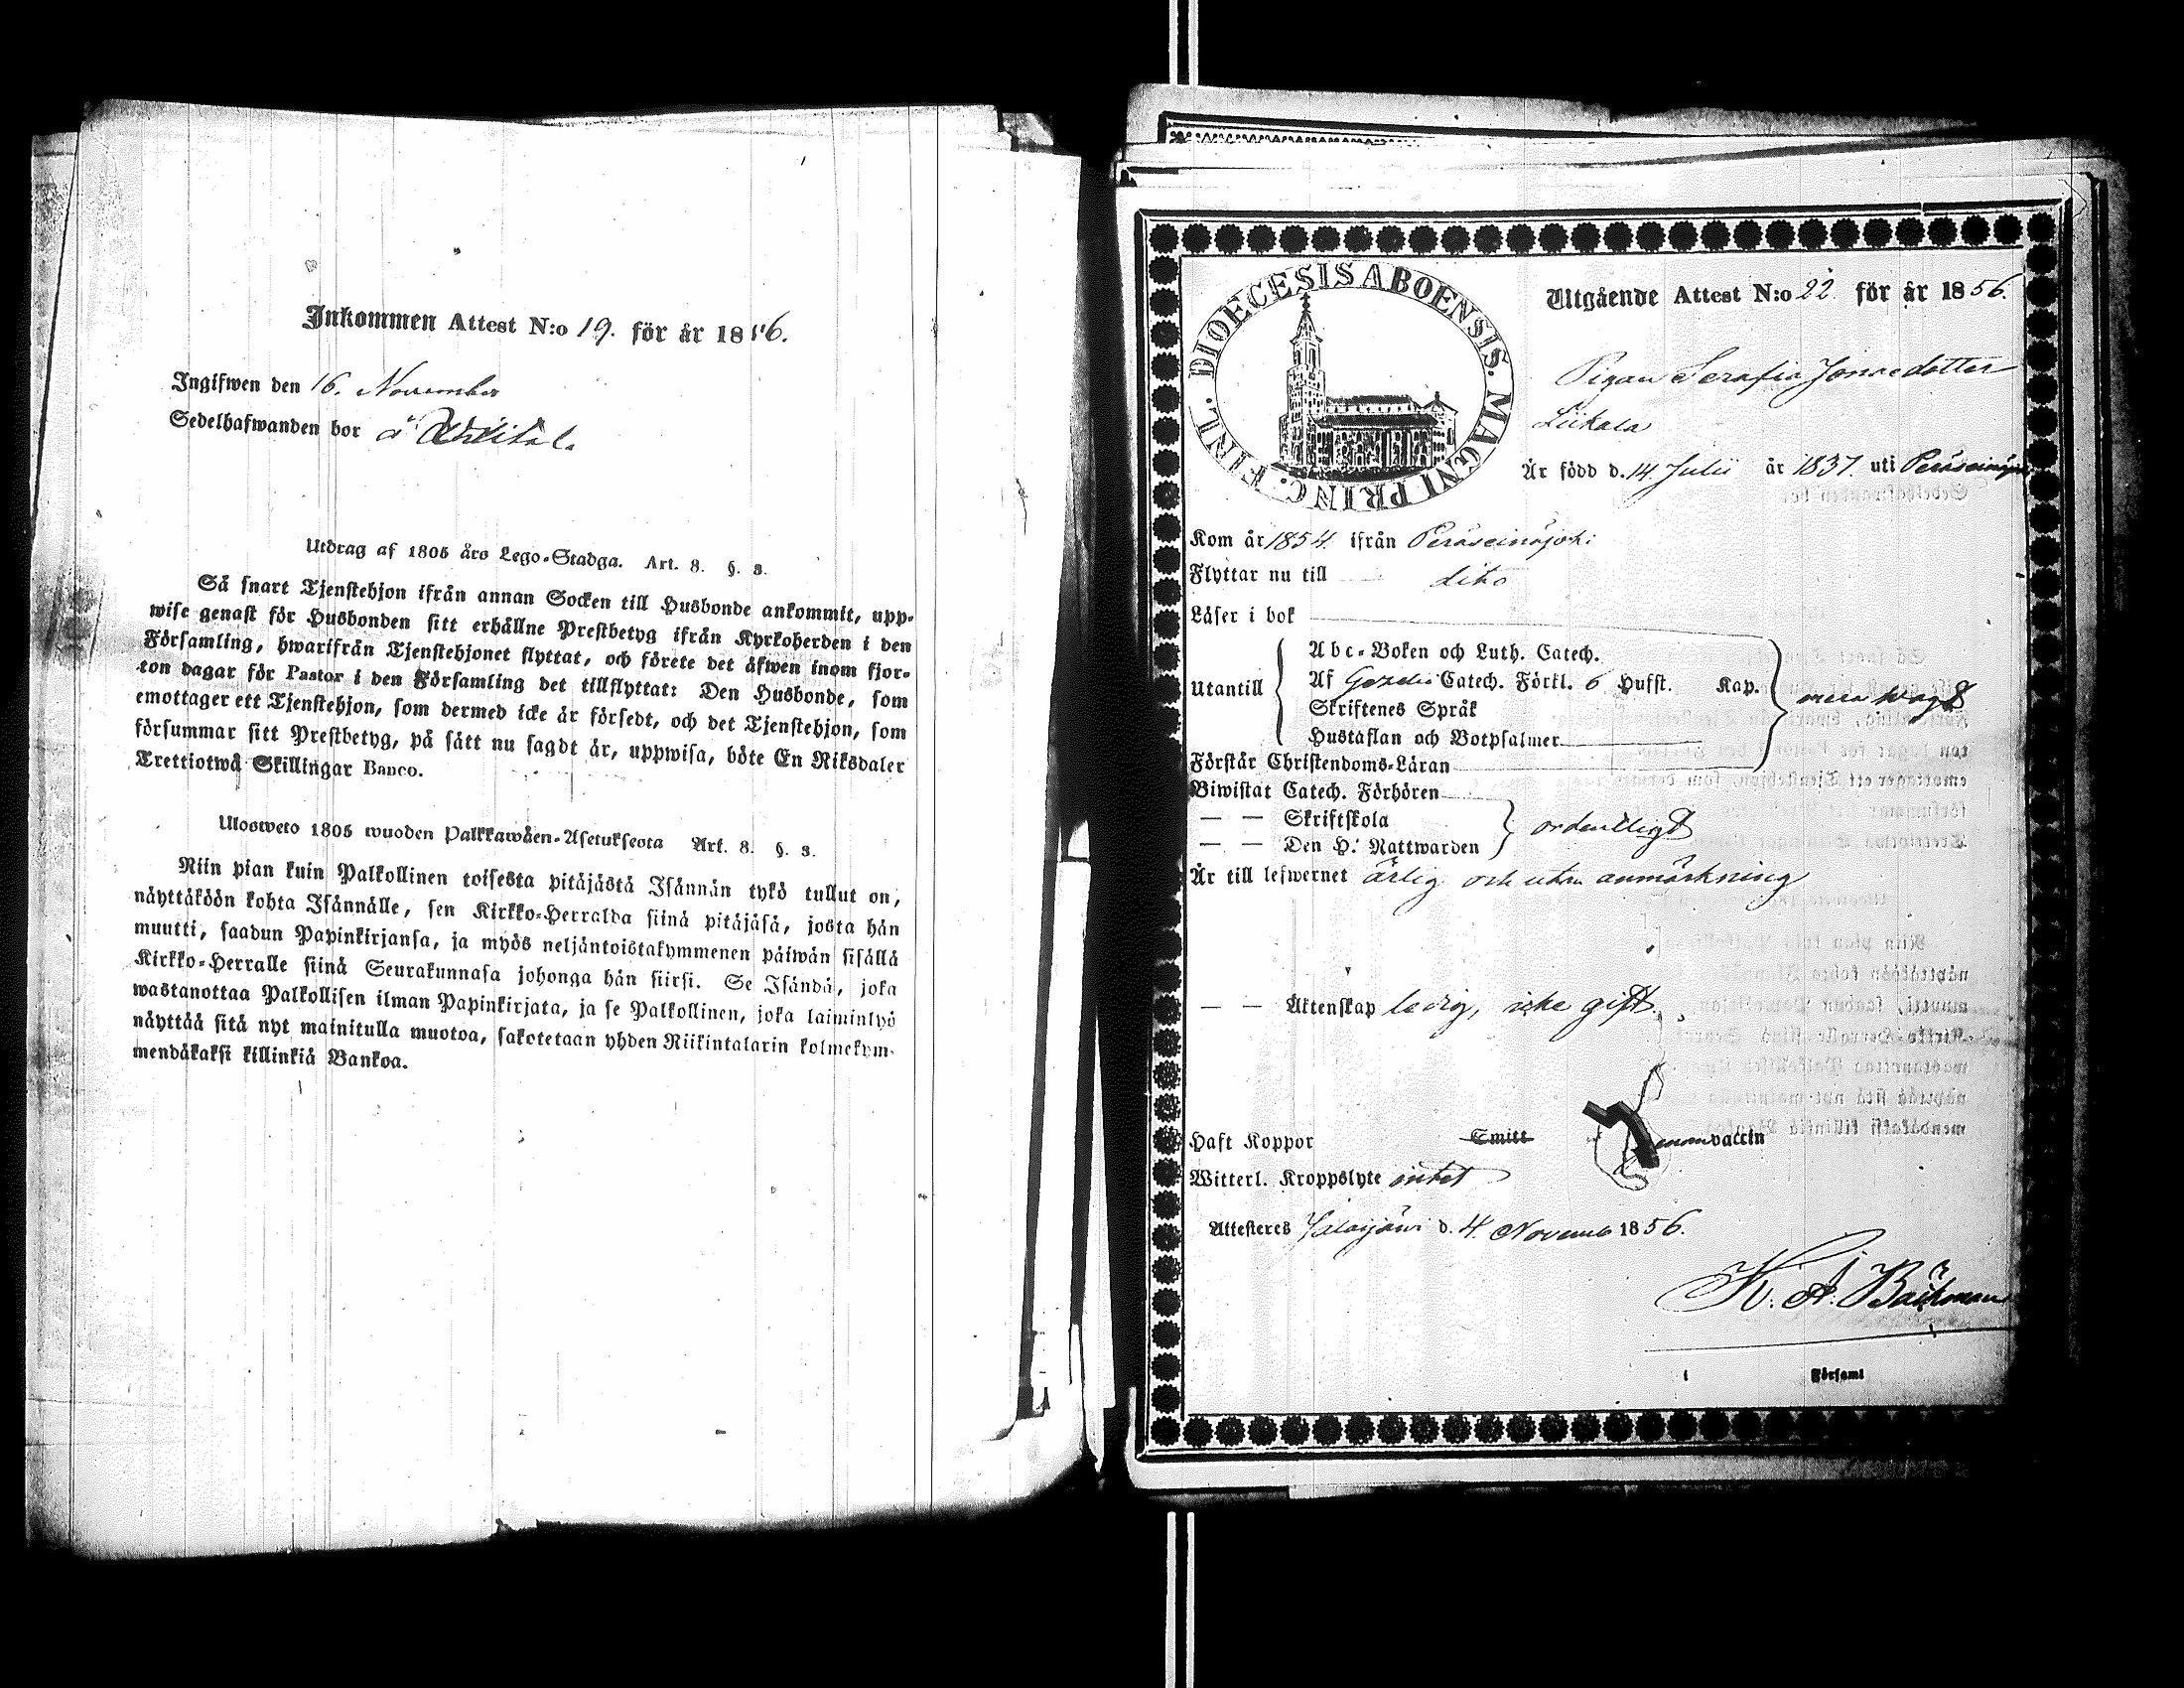 Inkommen Attest N:o 19. för år 1856.
Ingifwen den 16. November
Sedelhafwanden bor å
Utdrag af 1805 års Lego-Stadga. Art. 8. §. 3.
Så snart Tjenstehjon ifrån annan Socken till Husbonde ankommit, upp-
wise genast för Husbonden sitt erhållne Prestbetyg ifrån Kyrkoherden i den
Församling, hwarifrån Tjenstehjonet flyttat, och förete det äfwen inom fjor-
ton dagar för Pastor i den Församling det tillflyttat: Den Husbonde, som
emottager ett Tjenstehjon, som dermed icke är försedt, och det Tjenstehjon, som
försummar sitt Prestbetyg, på sätt nu sagdt är, uppwisa, böte En Riksdaler
Trettiotwå Skillingar Banco.
Ulosweto 1805 wuoden Palkkawäen-Asetuksesta Art. 8. §. 3.
Niin pian kuin Palkollinen toisesta pitäjästä Isännän tykö tullut on,
näyttäköön kohta Isännälle, sen Kirkko-Herralda siinä pitäjäsä, josta hän
muutti, saadun Papinkirjansa, ja myös neljäntoistakymmenen päiwän sisällä
Kirkko-Herralle siinä Seurakunnasa johonga hän siirsi. Se Isändä, joka
wastanottaa Palkollisen ilman Papinkirjata, ja se Palkollinen, joka laiminlyö
näyttää sitä nyt mainitulla muotoa, sakotetaan yhden Riikintalarin kolmekym-
mendäkaksi killinkiä Bankoa.
DIOECESIS ABOENSIS. MAGNI PRINC. FINL.
Utgående Attest N:o 22. för år 1856.
Pigan Serafia Jonaedotter
Liikala
Är född d. 14. Julii år 1837. uti Peräseinäjoki
Kom år 1854. ifrån Peräseinäjoki
Flyttar nu till dito
Läser i bok
Utantill
Abc-Boken och Luth. Catech.
Af Gezelii Catech. Förkl. 6 Hufst. Kap.
Skriftenes Språk
Hustaflan och Botpsalmer
Förstår Christendoms-Läran
Biwistat Catech. Förhören
— — Skriftskola
— — Den H. Nattwarden
ordentligt
Är till lefwernet ärlig och utan anmärkning
— — Äktenskap ledig, icke gift.
Haft Koppor Smitt vaccin
Witterl. Kroppslyte intet
Attesteres Jalasjärvi d. 4. Novemb 1856.
K. A. Bäckman
i Församl